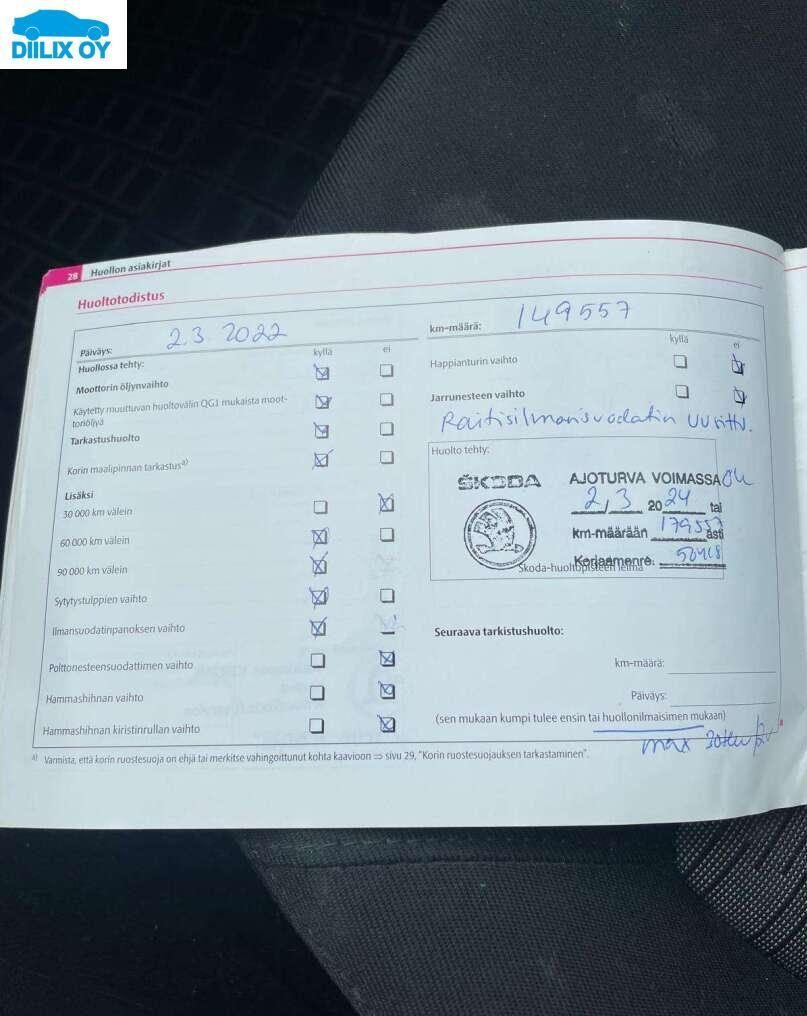 DIILIX OY
28 Huollon asiakirjat
Huoltotodistus
Päiväys: 2.3. 2022
Huollossa tehty: kyllä ei
Moottorin öljynvaihto
Käytetty muuttuvan huoltovälin QG1 mukaista moot-
toriöljyä
Tarkastushuolto
Korin maalipinnan tarkastus a)
Lisäksi
30 000 km välein
60 000 km välein
90 000 km välein
Sytytystulppien vaihto
Ilmansuodatinpanoksen vaihto
Polttonesteensuodattimen vaihto
Hammashihnan vaihto
Hammashihnan kiristinrullan vaihto
km-määrä: 149557
kyllä ei
Happianturin vaihto
Jarrunesteen vaihto
Raitisilmansuodatin uusittu.
Huolto tehty:
ŠKODA AJOTURVA VOIMASSA
2,3 2024 tai
km-määrään 179557 asti
Korjaamonro:
Skoda-huoltopisteen leima
Seuraava tarkistushuolto:
km-määrä:
Päiväys:
(sen mukaan kumpi tulee ensin tai huollonilmaisimen mukaan)
max 30tkm/2v
a) Varmista, että korin ruostesuoja on ehjä tai merkitse vahingoittunut kohta kaavioon ⇒ sivu 29, "Korin ruostesuojauksen tarkastaminen".